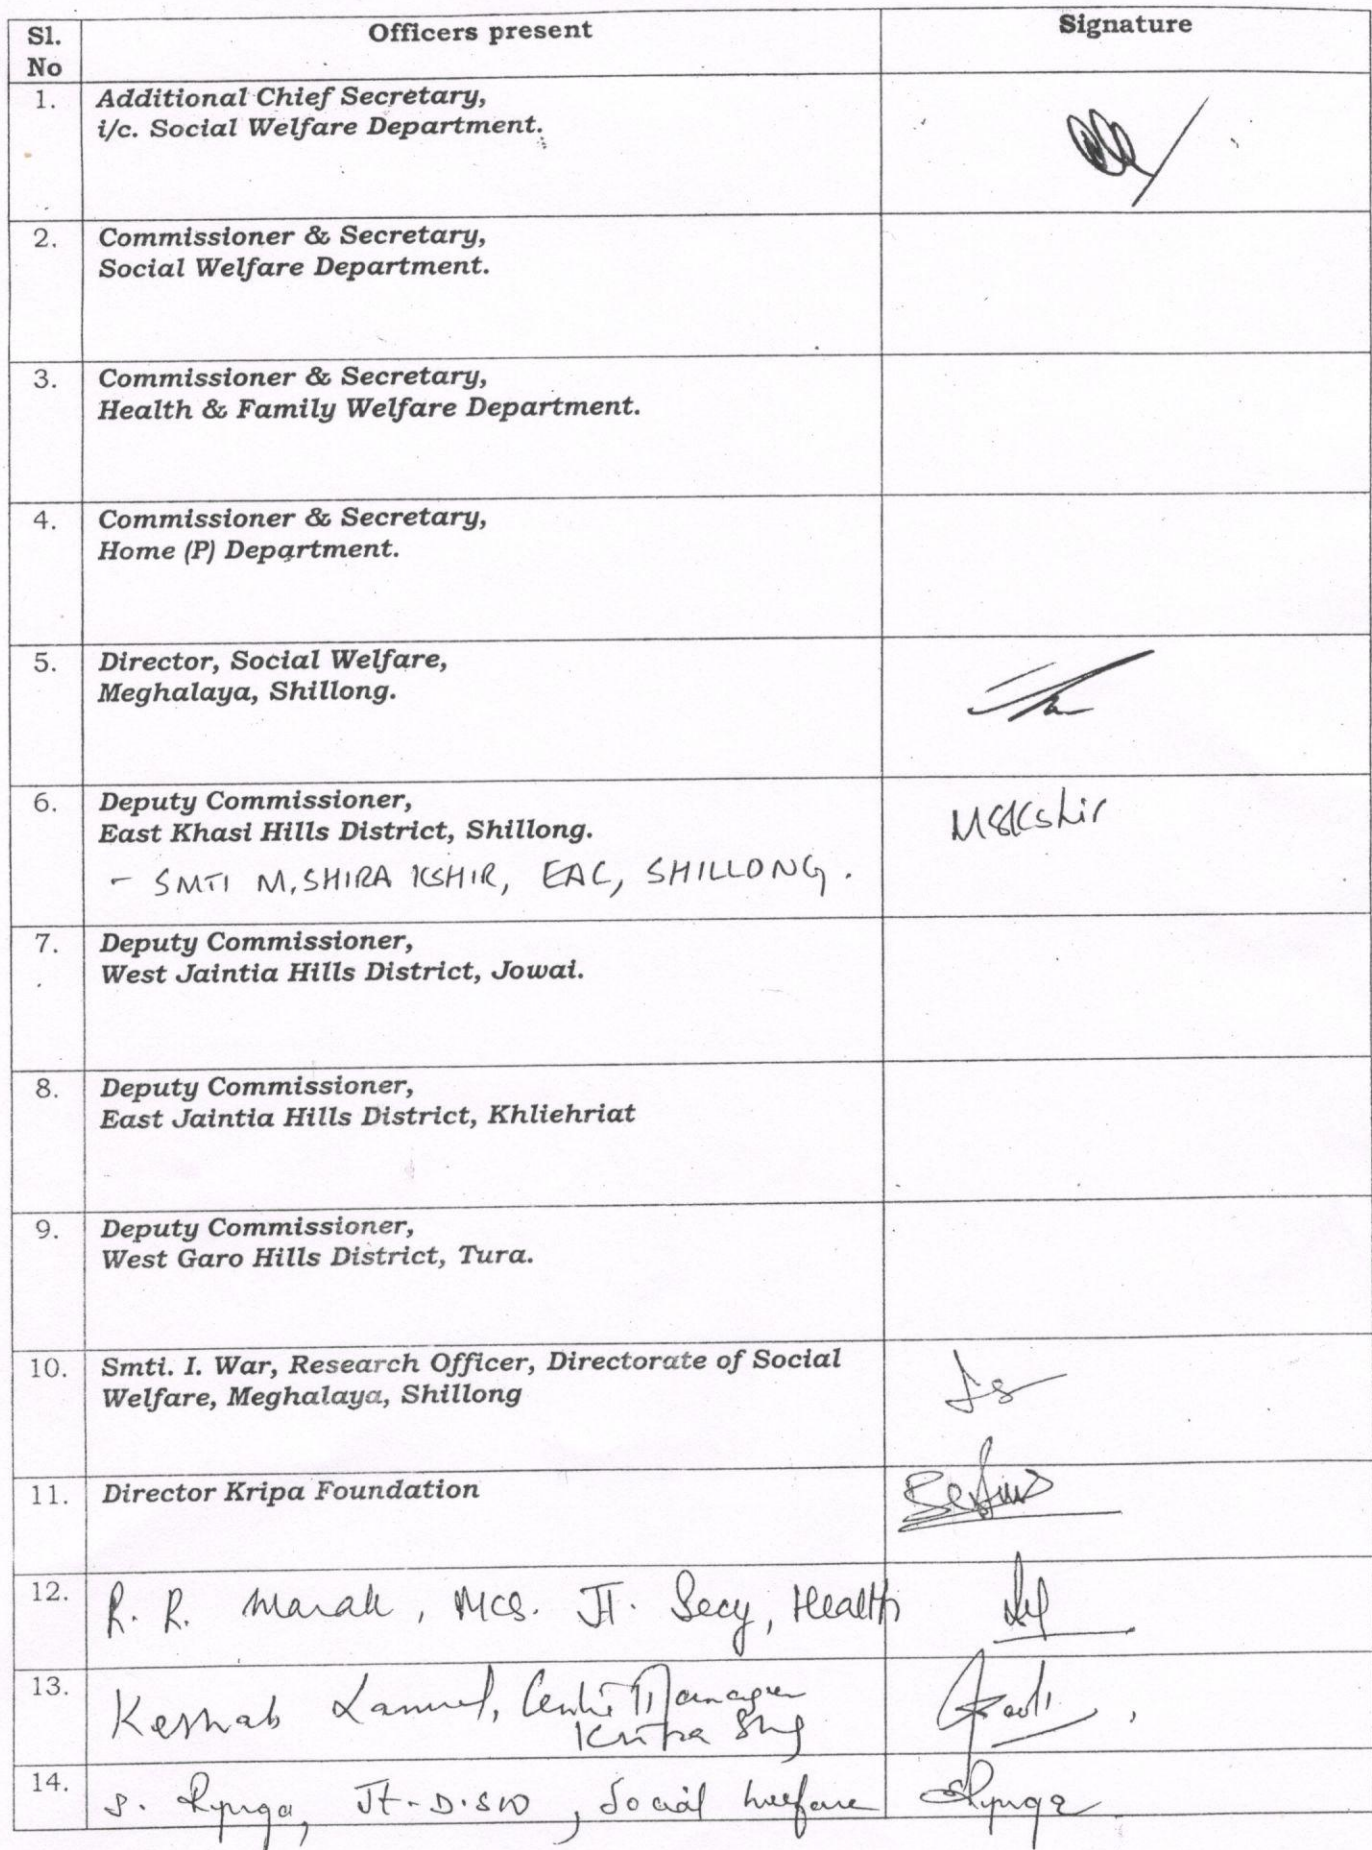 Sl. No
Officers present
Signature
1.
Additional Chief Secretary,
i/c. Social Welfare Department.
2.
Commissioner & Secretary,
Social Welfare Department.
3.
Commissioner & Secretary,
Health & Family Welfare Department.
4.
Commissioner & Secretary,
Home (P) Department.
5.
Director, Social Welfare,
Meghalaya, Shillong.
6.
Deputy Commissioner,
East Khasi Hills District, Shillong.
- SMTI M. SHIRA KSHIR, EAC, SHILLONG.
MSKshir
7.
Deputy Commissioner,
West Jaintia Hills District, Jowai.
8.
Deputy Commissioner,
East Jaintia Hills District, Khliehriat
9.
Deputy Commissioner,
West Garo Hills District, Tura.
10.
Smti. I. War, Research Officer, Directorate of Social
Welfare, Meghalaya, Shillong
11.
Director Kripa Foundation
12.
R. R. Marak, MCS. Jt. Secy, Health
13.
Keshab Centre Manager
Kripa Shg
14.
S. Rynga, Jt. D.SW, Social Welfare
SRynga